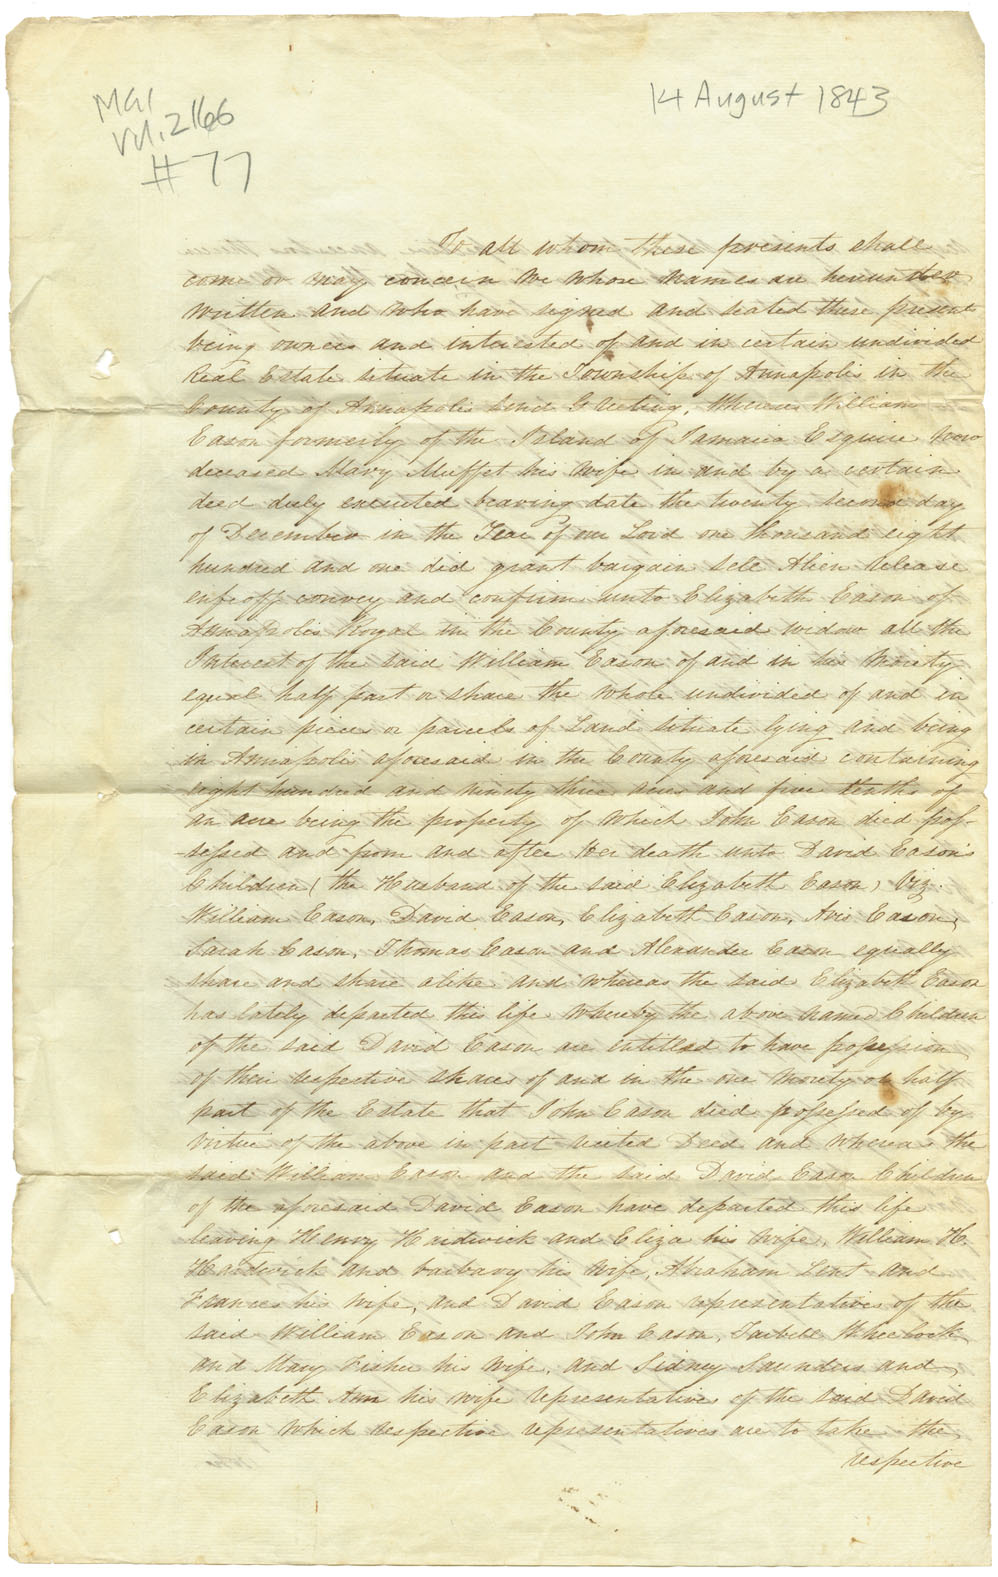 MG1
Vol. 2166
#77
14 August 1843
To all whom these presents shall
come or may concern We whose names are hereunder
written and who have signed and sealed these present
being owners and interested of and in certain undivided
Real Estate situate in the Township of Annapolis in the
County of Annapolis Send Greeting, Whereas William
Eason formerly of the Island of Jamaica Esquire now
deceased Mary Muffet his wife in and by a certain
deed duly executed bearing date the twenty second day
of December in the Year of our Lord one thousand eight
hundred and one did grant bargain sell Alien release
enfeoff convey and confirm unto Elizabeth Eason of
Annapolis Royal in the County aforesaid widow all the
Interest of the said William Eason of and in his Moiety
equal half part or share the whole undivided of and in
certain pieces or parcels of Land situate lying and being
in Annapolis aforesaid in the County aforesaid containing
eight hundred and ninety three acres and five tenths of
an acre being the property of which John Eason died pos-
-sessed and from and after Her death unto David Eason's
Children (the Husband of the said Elizabeth Eason) Viz.
William Eason, David Eason, Elizabeth Eason, Avis Eason,
Sarah Eason, Thomas Eason and Alexander Eason equally
share and share alike and whereas the said Elizabeth Eason
has lately departed this life whereby the above named Children
of the said David Eason are entitled to have possession
of their respective shares of and in the one Moiety or half
part of the Estate that John Eason died possessed of by
virtue of the above in part recited Deed and whereas the
said William Eason and the said David Eason Children
of the aforesaid David Eason have departed this life
leaving Henry Hardwick and Eliza his wife, William H.
Hardwick and barbary his wife, Abraham Lent and
Frances his wife, and David Eason representatives of the
said William Eason and John Eason, Tarbell Wheelock
and Mary Fisher his wife, and Sidney Saunders and
Elizabeth Ann his wife representatives of the said David
Eason which respective representatives are to take the
respective